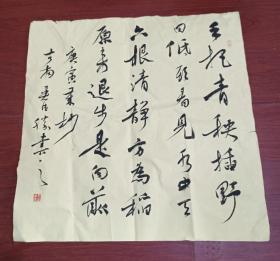 手把青秧插野
田低頭看見水中天
六根清靜方為稻
原来退步是向前
庚寅
書